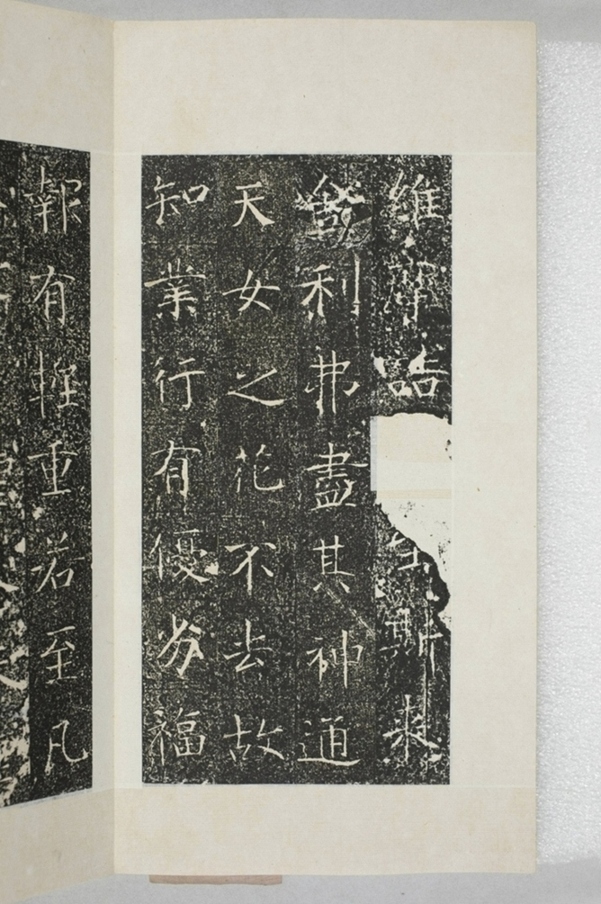 維摩詰斯来
利弗盡其神通
天女之花不去故
知業行有優劣福
報有輕重若至凡